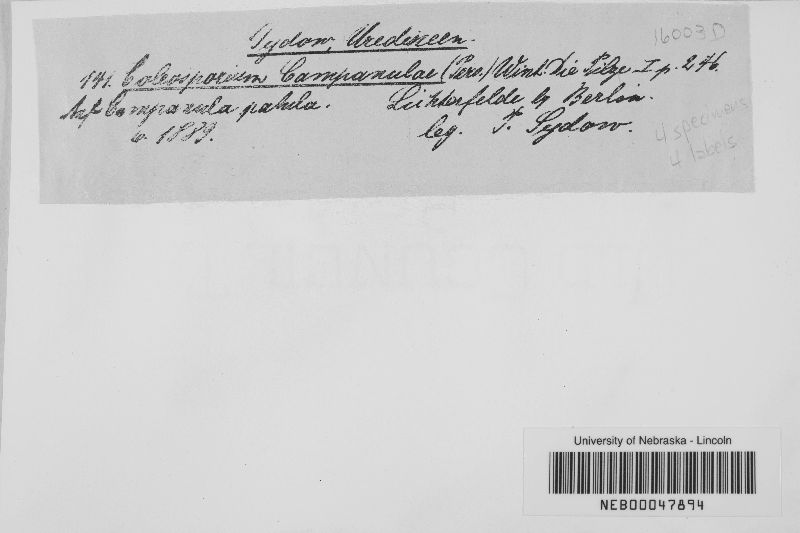 16003D
Sydow, Uredineen.
141. Coleosporium Campanulae (Pers.) Wint. Die Pilze I p. 246.
Auf Campanula patula. Lichterfelde b. Berlin.
1889. leg. P. Sydow.
4 specimens
4 labels
University of Nebraska - Lincoln
NEB00047894